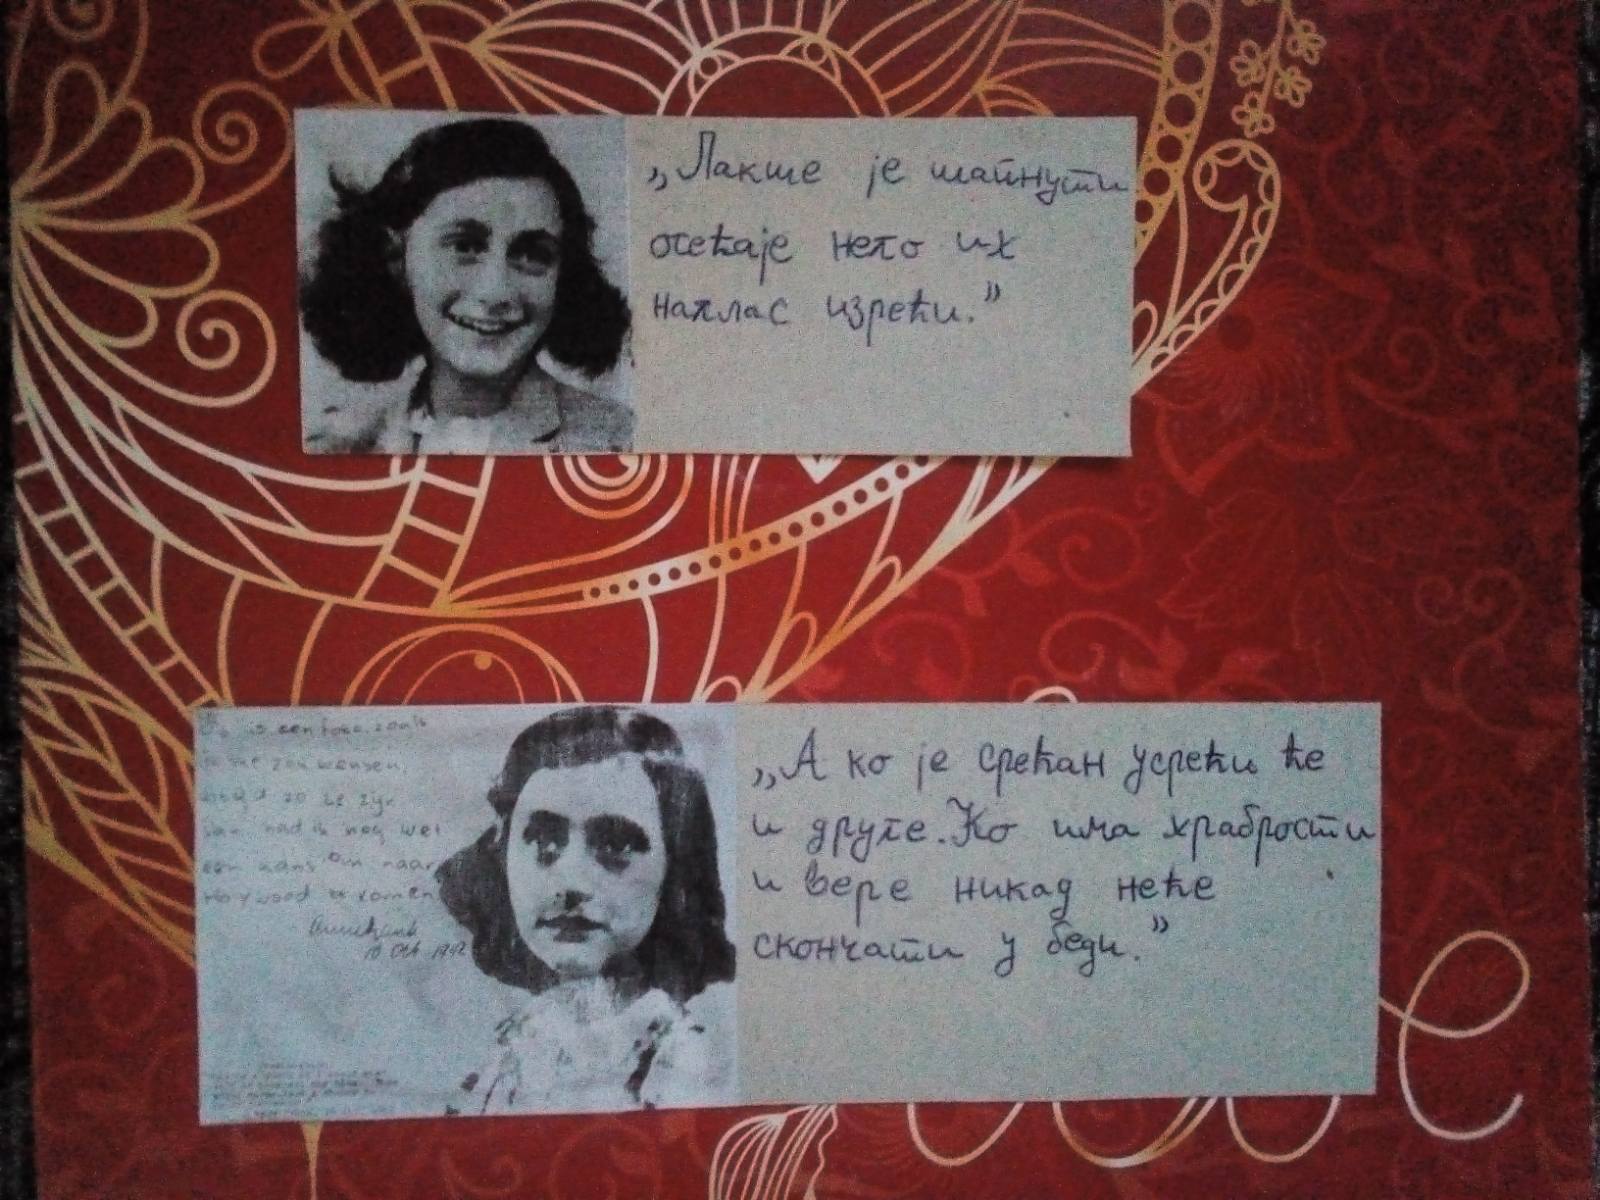 „Лакше је шапнути
осећаје него их
наглас изрећи.”
is een foto, zoals
me zou wensen,
altijd zo te zijn
Dan had ik nog wel
een kans om naar
Holywood te komen
Annefrank
10 Oct. 1942
„А ко је срећан усрећи ће
и друге. Ко има храбрости
и вере никад неће
скончати у беди.”